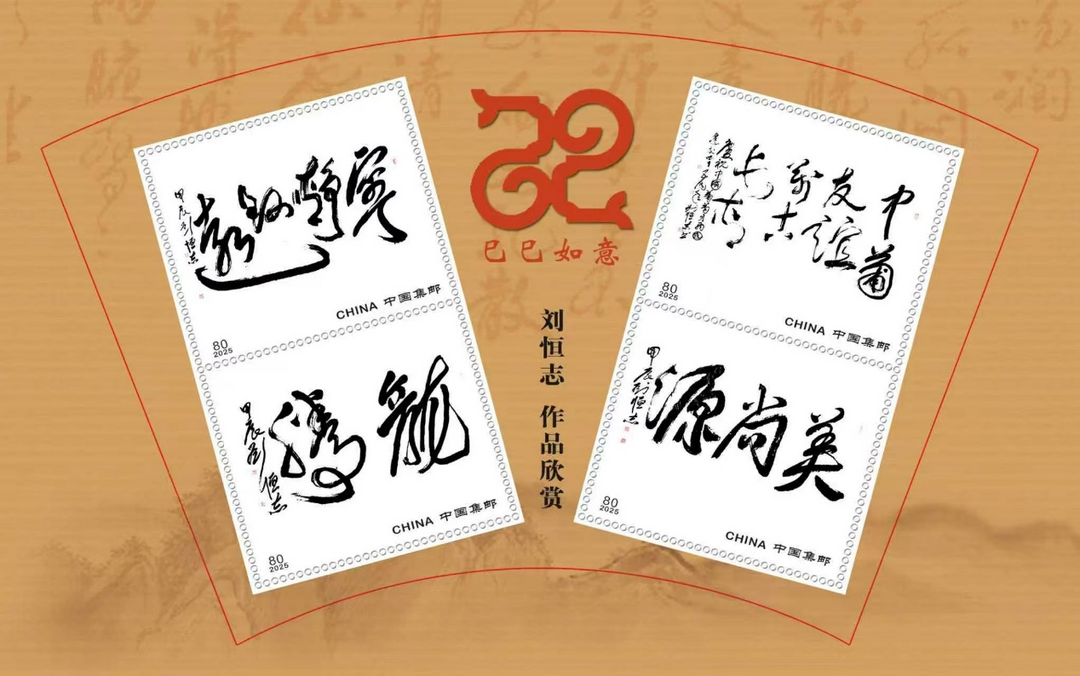 寧靜致遠
甲辰刘恒志
CHINA 中国集邮
80
2025
龍騰
甲辰刘恒志
CHINA 中国集邮
80
2025
巳巳如意
刘恒志 作品欣赏
中葡
友誼
萬古
長青
80
2025
CHINA 中国集邮
美尚源
甲辰刘恒志
80
2025
CHINA 中国集邮